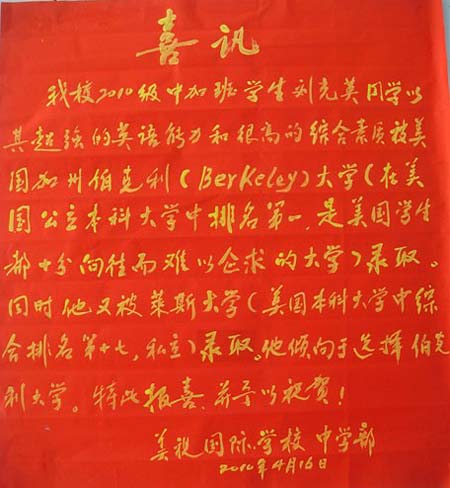 喜讯
我校2010级中加班学生刘克英同学以
其超强的英语能力和很高的综合素质被美
国加州伯克利(Berkeley)大学(在美
国公立本科大学中排名第一,是美国学生
都十分向往而难以企求的大学)录取。
同时他又被莱斯大学(美国本科大学中综
合排名第十七,私立)录取。他倾向于选择伯克
利大学。特此报喜,并予以祝贺!
美视国际学校 中学部
2010年4月16日